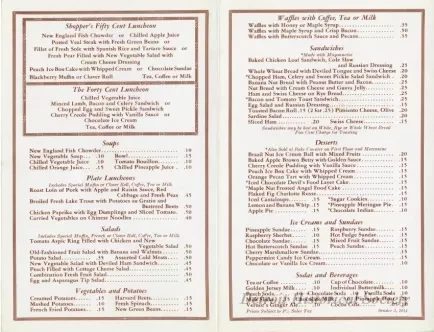 Shopper's Fifty Cent Luncheon
New England Fish Chowder or Chilled Apple Juice
Pound Veal Steak with Fresh Green Beans or
Fillet of Fresh Sole with Spanish Rice and Tartare Sauce or
Fresh Pear Filled with New Vegetable Salad with
Cream Cheese Dressing
Peach Ice Box Cake with Whipped Cream or Chocolate Sundae
Blackberry Muffin or Clover Roll Tea, Coffee or Milk
The Forty Cent Luncheon
Chilled Vegetable Juice
Minced Lamb, Bacon and Celery Sandwich or
Chopped Egg and Sweet Pickle Sandwich
Cherry Creole Pudding with Vanilla Sauce or
Chocolate Ice Cream
Tea, Coffee or Milk
Soups
New England Fish Chowder .10
New Vegetable Soup .10 Bowl .15
Chilled Vegetable Juice .10 Tomato Bouillon .10
Chilled Orange Juice .15 Chilled Pineapple Juice .10
Plate Luncheons
Includes Special Muffin or Clover Roll, Coffee, Tea or Milk
Roast Loin of Pork with Apple and Raisin Sauce, Red
Cabbage and Fresh Peas .45
Broiled Fresh Lake Trout with Potatoes au Gratin and
Buttered Beets .50
Chicken Paprika with Egg Dumplings and Sliced Tomato .50
Curried Vegetables on Chinese Noodles .40
Salads
Includes Special Muffin, French or Clover Roll, Coffee, Tea or Milk
Tomato Aspic Ring Filled with Chicken and New
Vegetable Salad .50
Old-Fashioned Fruit Salad with Banana and Walnuts .50
Potato Salad .35 Assorted Cold Meats .50
New Vegetable Salad with Deviled Ham Sandwich .45
Peach Filled with Cottage Cheese Salad .45
Combination Fresh Fruit Salad .50
Egg and Asparagus Tip Salad .45
Vegetables and Potatoes
Creamed Potatoes .15 Harvard Beets .10
Mashed Potatoes .10 Fresh Spinach .10
French Fried Potatoes .15 New Green Beans .15
Waffles with Coffee, Tea or Milk
Waffles with Honey or Maple Syrup .35
Waffles with Maple Syrup and Crisp Bacon .50
Waffles with Butterscotch Sauce and Pecans .35
Sandwiches
*Made with Mayonnaise
Baked Chicken Loaf Sandwich, Cole Slaw
and Russian Dressing .25
Whole Wheat Bread with Deviled Tongue and Swiss Cheese .20
*Chopped Ham, Celery and Sweet Pickle Salad Sandwich .20
Banana Nut Bread with Peanut Butter and Bacon .20
Nut Bread with Cream Cheese and Guava Jelly .25
Ham and Swiss Cheese on Rye Bread .25
*Bacon and Tomato Toast Sandwich .25
Egg Salad and Russian Dressing .15
Toasted Bacon Roll .15 Pimiento Cheese, Olive .20
Sardine Salad
Sliced Ham .20 Swiss Cheese .15
Sandwiches may be had on White, Rye or Whole Wheat Bread
Desserts
Brazil Nut Ice Cream Ball with Mixed Fruits .20
Baked Apple Brown Betty with Golden Sauce .15
Cherry Creole Pudding with Vanilla Sauce .15
Peach Ice Box Cake with Whipped Cream .15
Orange Pecan Tart with Whipped Cream .15
*Iced Chocolate Devil's Food Layer Cake .15
*Maple Nut Frosted Angel Food Cake .15
Iced Cantaloupe .15 *Sugar Cookies .10
Lemon and Banana Whip .15 *Pineapple Meringue Pie .15
Apple Pie .15 *Chocolate Indian .10
Ice Creams and Sundaes
Pineapple Sundae .15 Raspberry Sundae .15
Raspberry Sherbet .10 Hot Fudge Sundae .15
Chocolate Sundae .15 Mixed Fruit Sundae .15
Hot Butterscotch Sundae .15 Pecan Sundae .15
Cherry Marshmallow Sundae .15
Peppermint Candy Ice Cream .15
Chocolate or Vanilla Ice Cream .10
Sodas and Beverages
Tea or Coffee .10 Cup of Chocolate .10
Golden Jersey Milk .10 Individual Buttermilk .10
Chocolate Soda .15 Vanilla Soda
Vernor's Ginger Ale .10
Prices Subject to 3% Sales Tax October 5, 1933